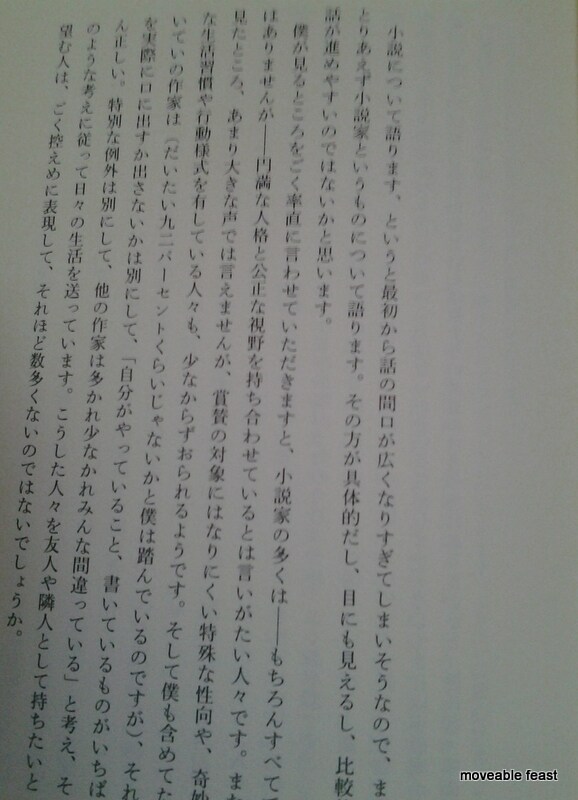 小説について語ります、というと最初から話の間口が広くなりすぎてしまいそうなので、ま
とりあえず小説家というものについて語ります。その方が具体的だし、目にも見えるし、比較
話が進めやすいのではないかと思います。
僕が見るところをごく率直に言わせていただきますと、小説家の多くは——もちろんすべてで
はありませんが——円満な人格と公正な視野を持ち合わせているとは言いがたい人々です。また
見たところ、あまり大きな声では言えませんが、賞賛の対象にはなりにくい特殊な性向や、奇妙
な生活習慣や行動様式を有している人々も、少なからずおられるようです。そして僕も含めてた
いていの作家は（だいたい九二パーセントくらいじゃないかと僕は踏んでいるのですが）、それ
を実際に口に出すか出さないかは別にして、「自分がやっていること、書いているものがいちば
ん正しい。特別な例外は別にして、他の作家は多かれ少なかれみんな間違っている」と考え、そ
のような考えに従って日々の生活を送っています。こうした人々を友人や隣人として持ちたいと
望む人は、ごく控えめに表現して、それほど数多くないのではないでしょうか。
moveable feast